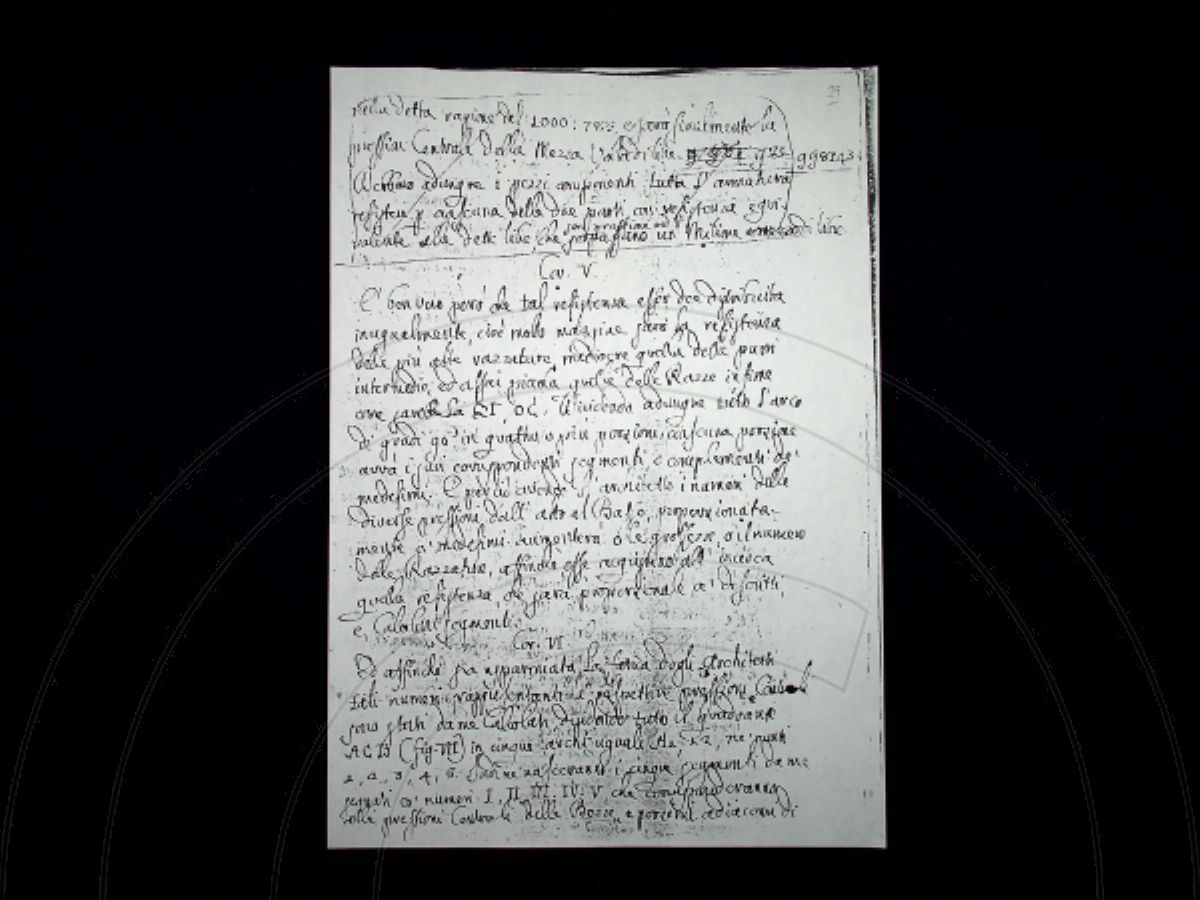 29
nella detta ragione del 1000 : 785 e sarà finalmente la
pression Centrale della Mezza
Debbono adunque i pezzi componenti tutta l'armatura
resistere p ciascuna delle due parti con resistenza equi-
valente alle dette libre, che sorpassano un Milione di libre
Cor. V
E' ben vero però che tal resistenza esser dee distribuita
inugualmente, cioè molto maggiore sarà la resistenza
delle più alte razzature, mediocre quella delle parti
intermedie, ed assai piccola quella delle Razze infime
come sarebbe la RI OC. Dividendo adunque tutto l'arco
di gradi 90 in quattro o più porzioni, ciascuna porzione
avrà i suoi corrispondenti segmenti e complementi de'
medesimi. E perciò avendo l'architetto i numeri delle
diverse pressioni dall' alto al Basso, proporzionata-
mente a' medesimi aumenterà o le grossezze, o il numero
delle Razzature, affinchè esse acquistino dall'
quella resistenza, che sarà proporzionale a'
e Calcolati segmenti.
Cor. VI
Ed affinchè sia risparmiata la fatica degli Architetti
tali numeri rappresentanti le rispettive pressioni Centrali
sono stati da me Calcolati dividendo tutto il quadrante
ACB (fig. VII) in cinque archi uguali ne' punti
1, 2, 3, 4, 5. Indi ne nasceranno i cinque segmenti da me
segnati co' numeri I. II. III. IV. V che corrisponderanno
alle pressioni Centrali delle Bozze, e porzioni adiacenti di